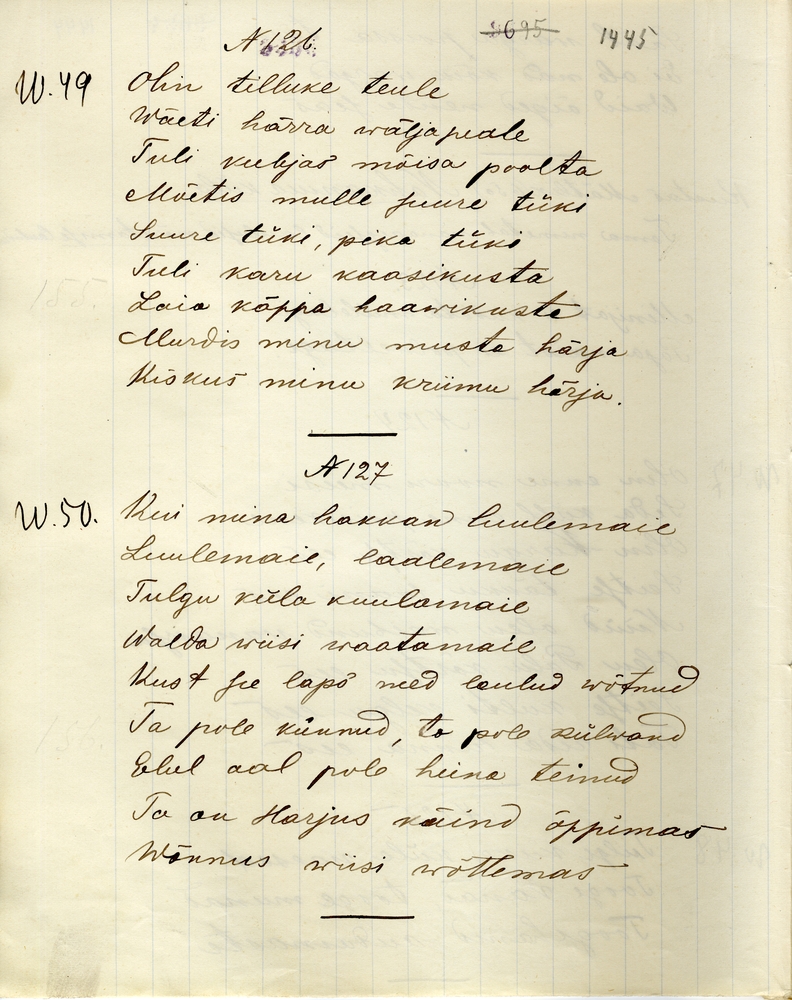 N 126.
695 1445
W. 49 Olin tilluke teule
Wäeti härra wäljapeale
Tuli kubjas mõisa poolta
Mõetis mulle suure tüki
Suure tüki, pika tüki
Tuli karu kaasikusta
Laia käppa haawikusta
Murdis minu musta härja
Kiskus minu kriimu härja.
N 127
W. 50. Kui mina hakkan luulemaie
Luulemaie, laalemaie
Tulgu küla kuulamaie
Walda wiisi waatamaie
Kust see laps need laulud wõtnud
Ta pole kündnud, ta pole külwand
Ehel aal pole heina teinud
Ta on Harjus käind õppimas
Wõnnus wiisi wõttemas